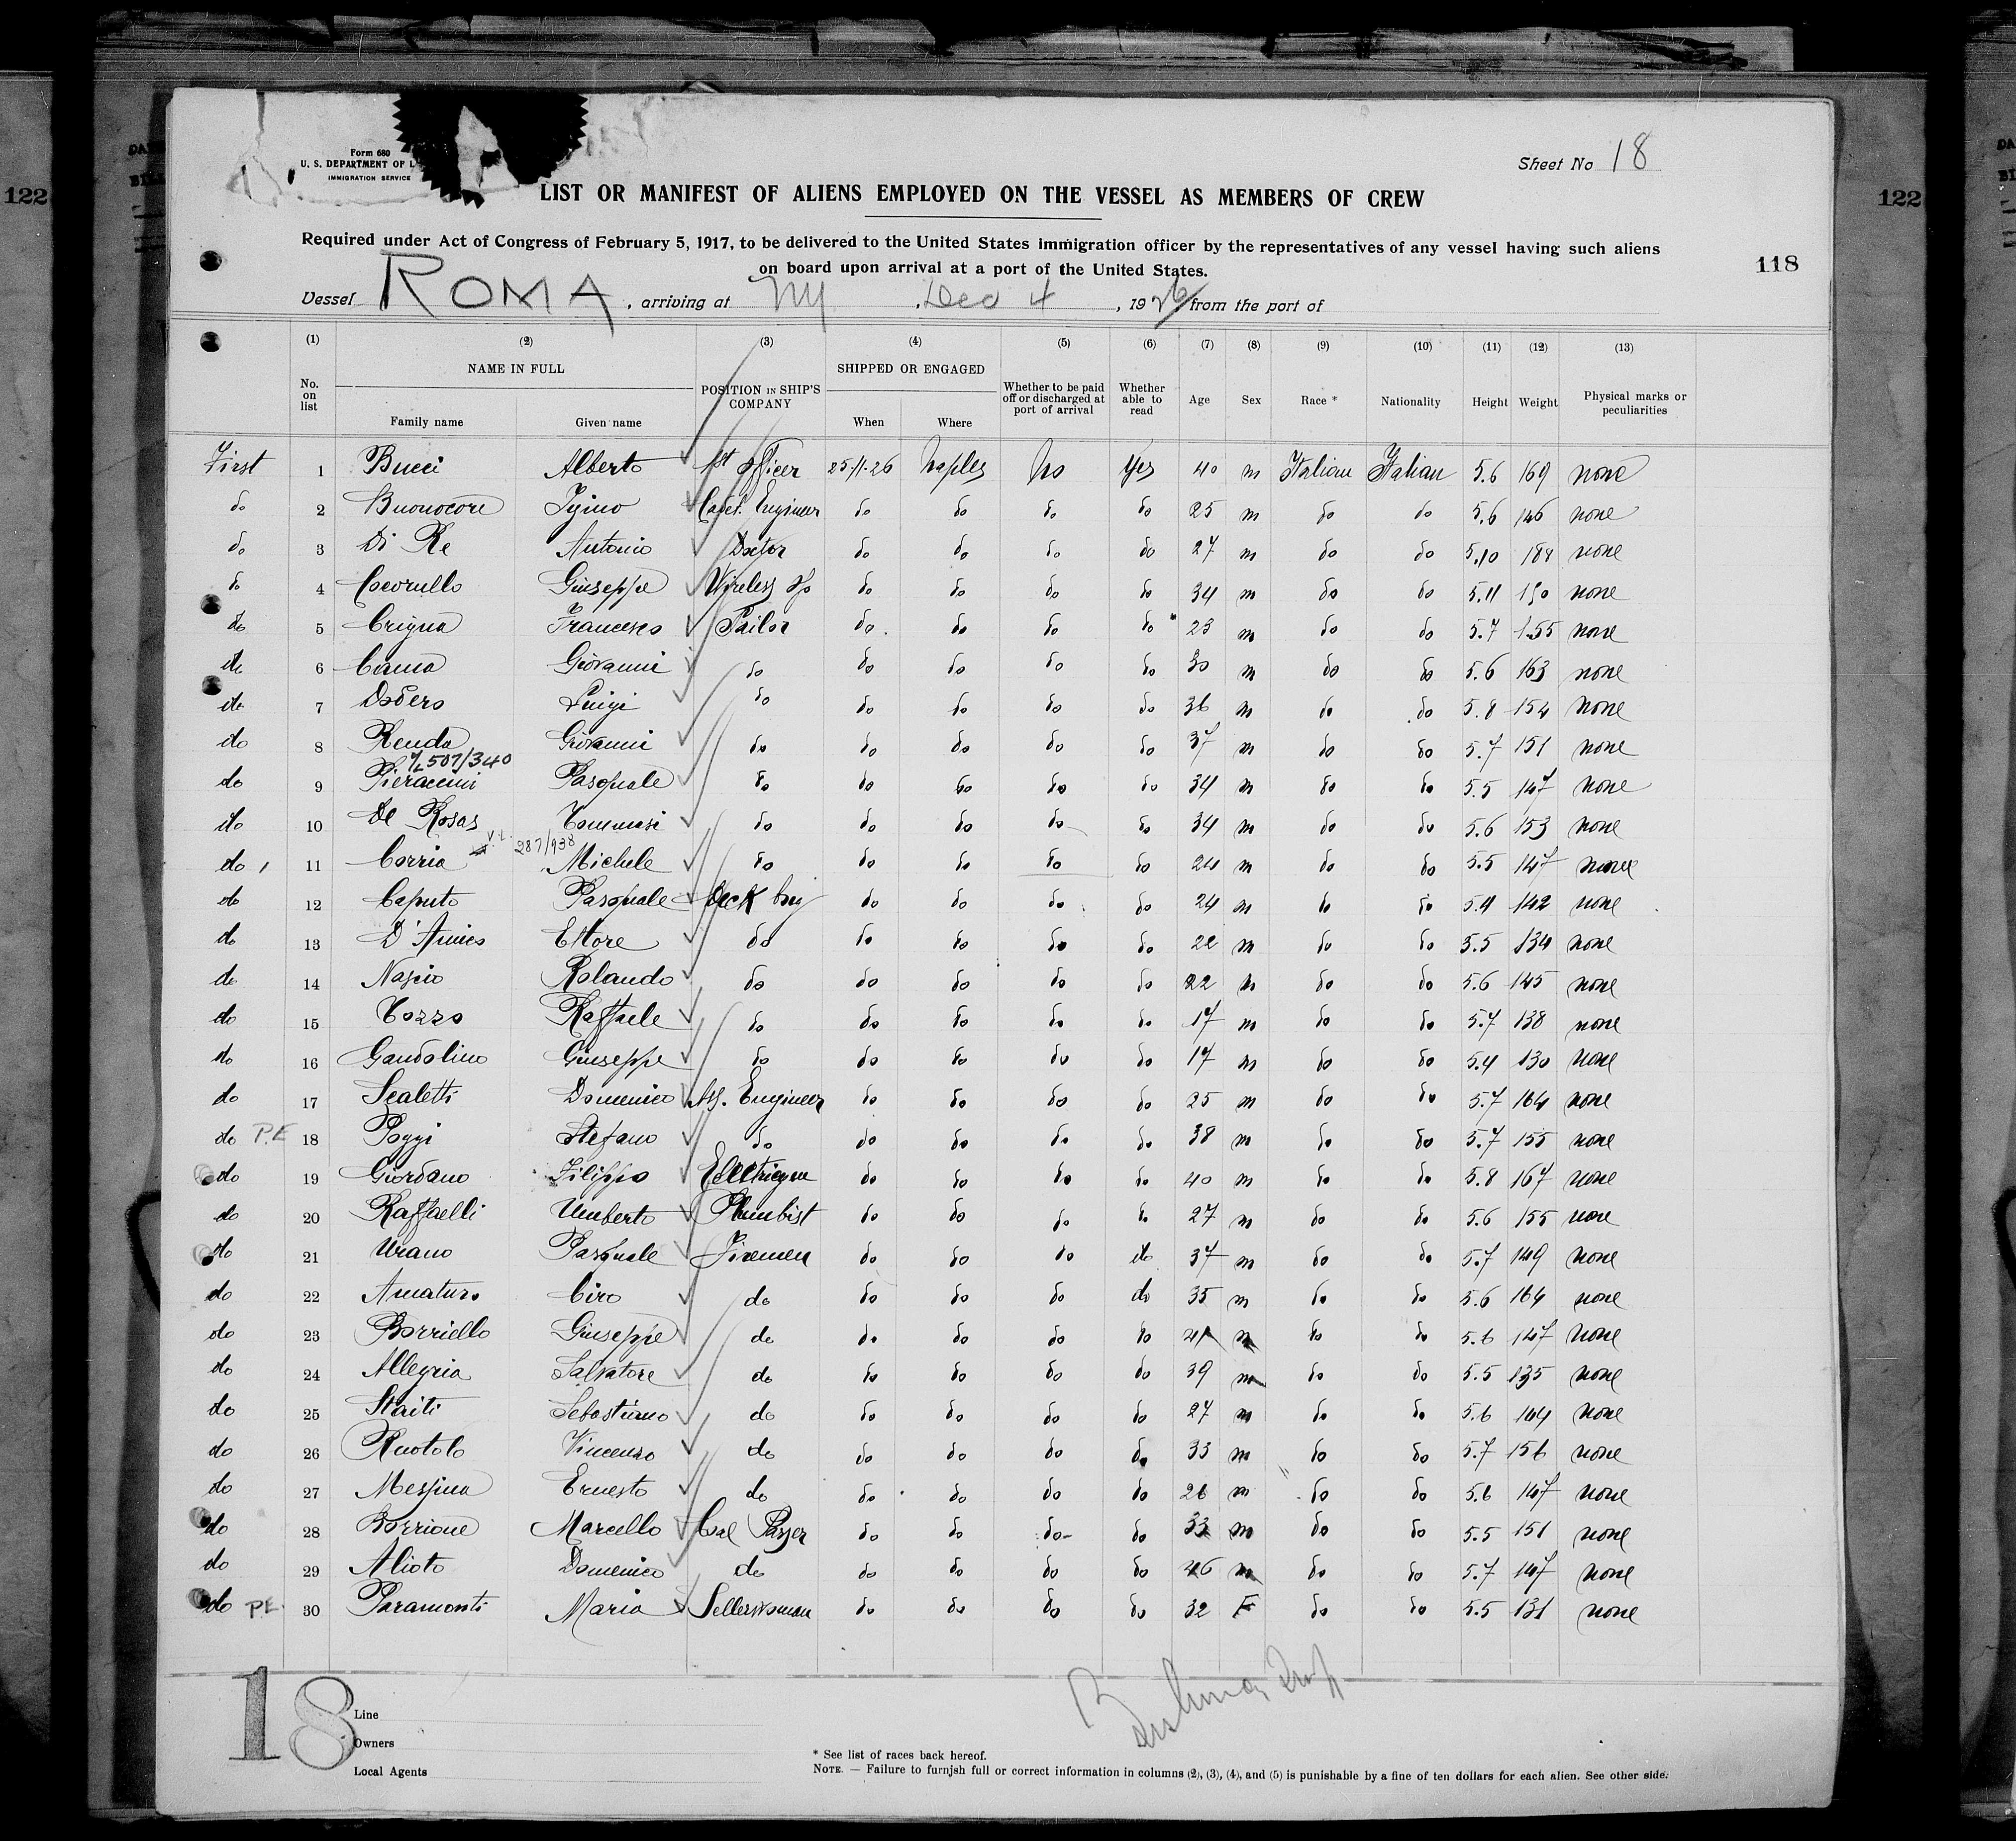 122
122
Form 680
U. S. DEPARTMENT OF L
IMMIGRATION SERVICE
Sheet No 18
LIST OR MANIFEST OF ALIENS EMPLOYED ON THE VESSEL AS MEMBERS OF CREW
Required under Act of Congress of February 5, 1917, to be delivered to the United States immigration officer by the representatives of any vessel having such aliens
on board upon arrival at a port of the United States.
118
Vessel ROMA, arriving at NY, Dec 4, 1926 from the port of
(1) (2) (3) (4) (5) (6) (7) (8) (9) (10) (11) (12) (13)
No. on list NAME IN FULL Family name Given name POSITION IN SHIP'S COMPANY SHIPPED OR ENGAGED When Where Whether to be paid off or discharged at port of arrival Whether able to read Age Sex Race * Nationality Height Weight Physical marks or peculiarities
First 1 Bucci Alberto 1st officer 25-11-26 Naples No Yes 40 m Italian Italian 5.6 169 none
do 2 Buonocore Igino Cadet Engineer do do do do 25 m do do 5.6 146 none
do 3 Di Re Antonio Doctor do do do do 27 m do do 5.10 none
do 4 Giuseppe Wireless Op do do do do 34 m do do 5.11 none
do 5 Francesco Sailor do do do do 23 m do do 5.7 155 none
do 6 Giovanni do do do do do 30 m do do 5.6 163 none
do 7 Dodero Luigi do do do do do 36 m do do 5.8 154 none
do 8 Renda Giovanni do do do do do 37 m do do 5.7 151 none
507/340
do 9 Pieraccini Pasquale do do do do do 34 m do do 5.5 147 none
do 10 De Rosas Tommasi do do do do do 34 m do do 5.6 153 none
287/938
do 11 Corria Michele do do do do do 24 m do do 5.5 147 none
do 12 Caputo Pasquale Deck boy do do do do 24 m do do 5.4 142 none
do 13 D'Amico Ettore do do do do do 22 m do do 5.5 134 none
do 14 Rolando do do do do do 22 m do do 5.6 145 none
do 15 Tozzo Raffaele do do do do do 17 m do do 5.7 138 none
do 16 Gandolino Giuseppe do do do do do 17 m do do 5.4 130 none
do 17 Scaletti Domenico Ass. Engineer do do do do 25 m do do 5.7 164 none
do P.E 18 Poggi Stefano do do do do do 38 m do do 5.7 155 none
do 19 Giordano Filippo do do do do 40 m do do 5.8 167 none
do 20 Raffaelli Umberto Plumbist do do do do 27 m do do 5.6 155 none
do 21 Urano Pasquale Firemen do do do do 37 m do do 5.7 149 none
do 22 Amaturo Ciro do do do do do 35 m do do 5.6 164 none
do 23 Borriello Giuseppe do do do do do m do do 5.6 147 none
do 24 Allegria Salvatore do do do do do 39 m do do 5.5 135 none
do 25 Staiti Sebastiano do do do do do 27 m do do 5.6 164 none
do 26 Ruotolo Vincenzo do do do do do 33 m do do 5.7 156 none
do 27 Messina Ernesto do do do do do 26 m do do 5.6 147 none
do 28 Borrione Marcello Coal Passer do do do do 33 m do do 5.5 151 none
do 29 Alioto Domenico do do do do do 46 m do do 5.7 147 none
do P.E. 30 Paramonti Maria do do do do 32 F do do 5.5 131 none
18
Line
Owners
Local Agents
* See list of races back hereof.
NOTE. — Failure to furnish full or correct information in columns (2), (3), (4), and (5) is punishable by a fine of ten dollars for each alien. See other side.